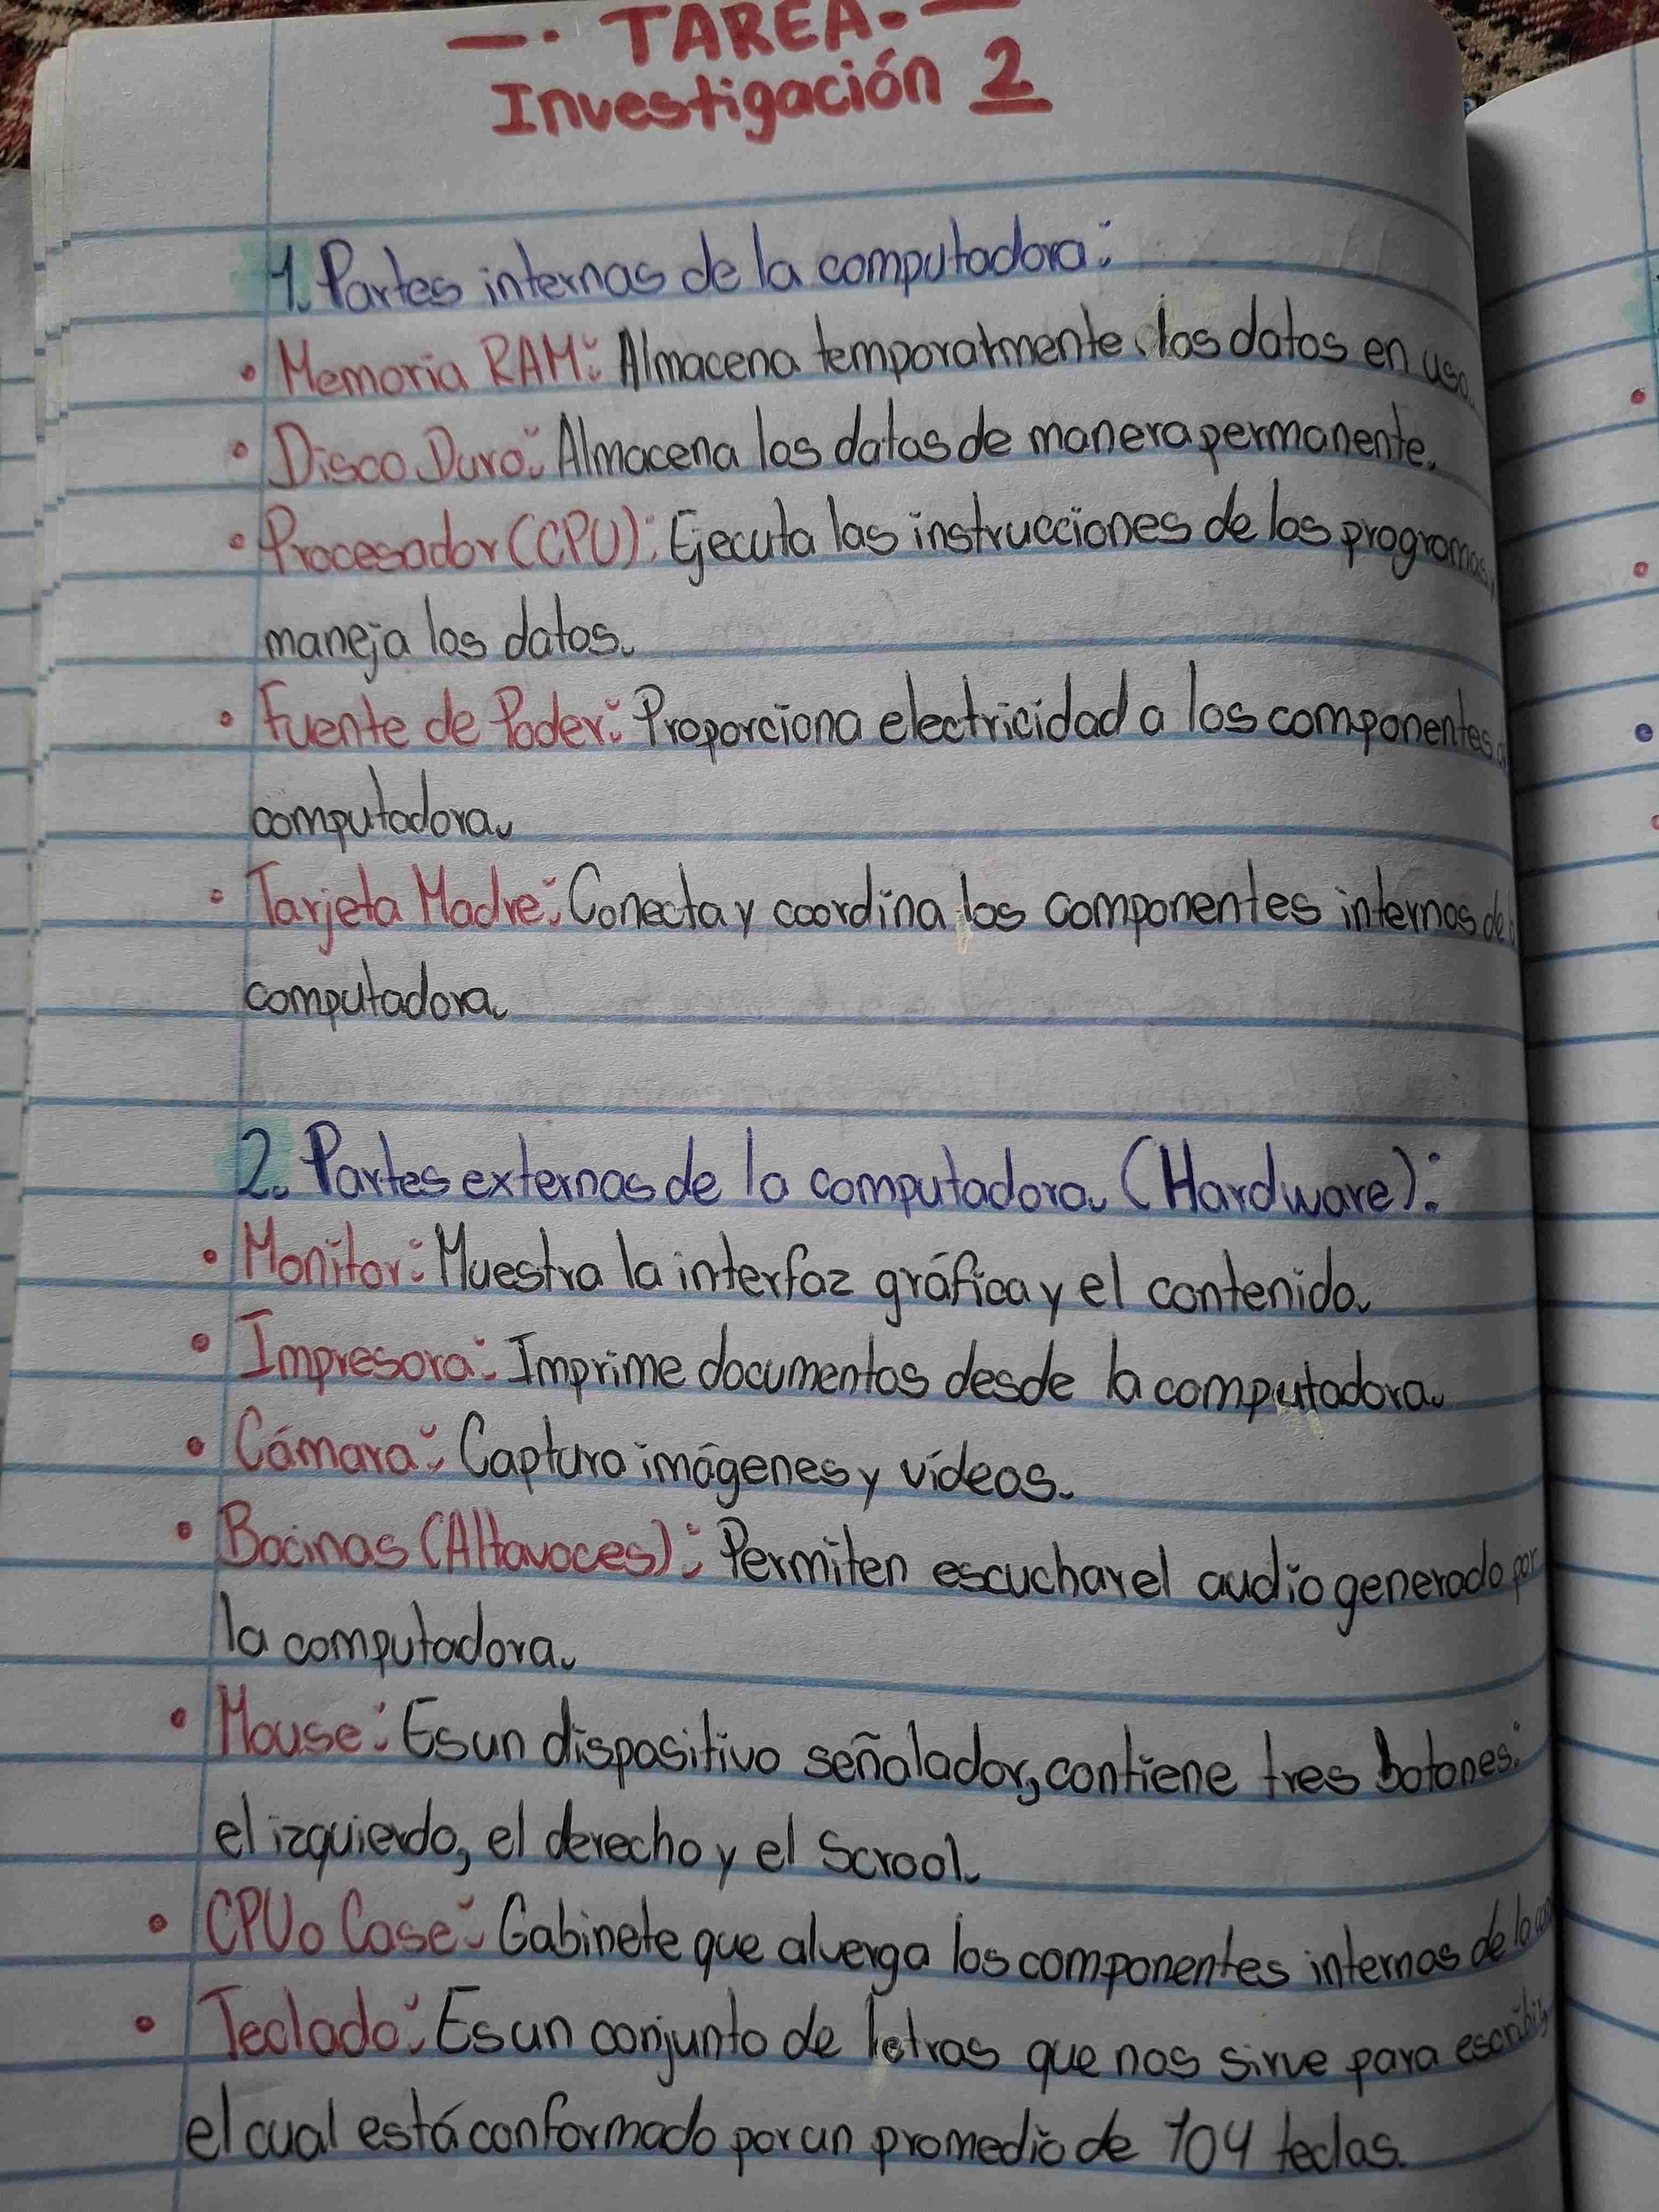 —. TAREA. —
Investigación 2
1. Partes internas de la computadora:
• Memoria RAM: Almacena temporalmente los datos en uso.
• Disco Duro: Almacena los datos de manera permanente.
• Procesador (CPU): Ejecuta las instrucciones de los programas y
maneja los datos.
• Fuente de Poder: Proporciona electricidad a los componentes
computadora.
• Tarjeta Madre: Conecta y coordina los componentes internos de
computadora.
2. Partes externas de la computadora. (Hardware):
• Monitor: Muestra la interfaz gráfica y el contenido.
• Impresora: Imprime documentos desde la computadora.
• Cámara: Captura imágenes y vídeos.
• Bocinas (Altavoces): Permiten escuchar el audio generado por
la computadora.
• Mouse: Es un dispositivo señalador, contiene tres botones:
el izquierdo, el derecho y el Scrool.
• CPU o Case: Gabinete que alverga los componentes internos de la
• Teclado: Es un conjunto de letras que nos sirve para escribir
el cual está conformado por un promedio de 104 teclas.